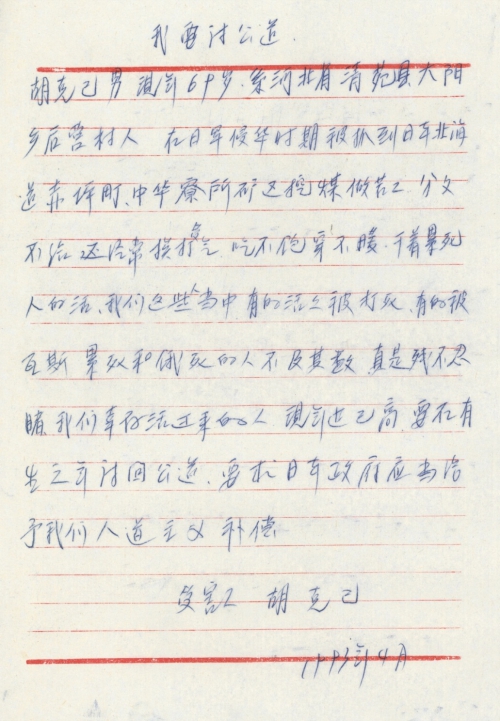 我要讨公道.
胡克己男 现年69岁.系河北省清苑县大阳
乡后营村人 在日军侵华时期被抓到日本北海
道赤坪町、中华寮所矿区挖煤做苦工 分文
不给还经常挨打受气 吃不饱穿不暖.干着累死
人的活、我们这些人当中有的活活被打死.有的被
瓦斯 累死和饿死的人不及其数 真是残不忍
睹.我们幸存活过来的人 现年近已高.要在有
生之年讨回公道.要求日本政府应当给
予我们人道主义补偿
受害工 胡克己
1993年4月